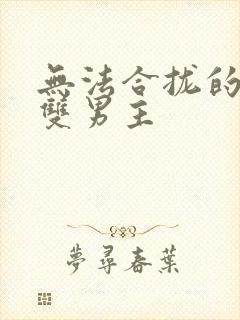 無法合拢的
雙男主
夢尋春葉